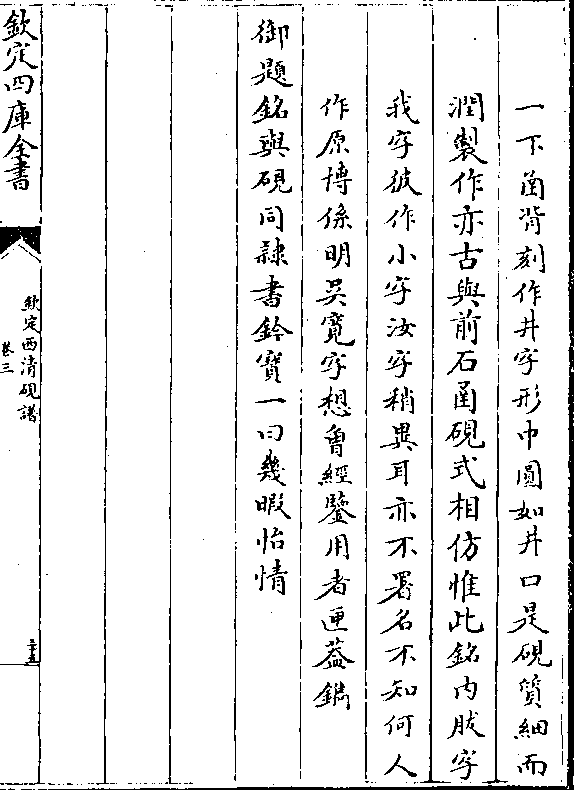 一下凾背刻作井字形中圓如井口是硯質細而
潤製作亦古與前石凾硯式相仿惟此銘内朕字
我字彼作小字汝字稍異耳亦不署名不知何人
作原博係明吳寬字想曾經鑒用者匣葢鐫
御題銘與硯同隷書鈐寶一曰幾暇怡情
欽定四庫全書
欽定西清硯譜
卷三
二十五